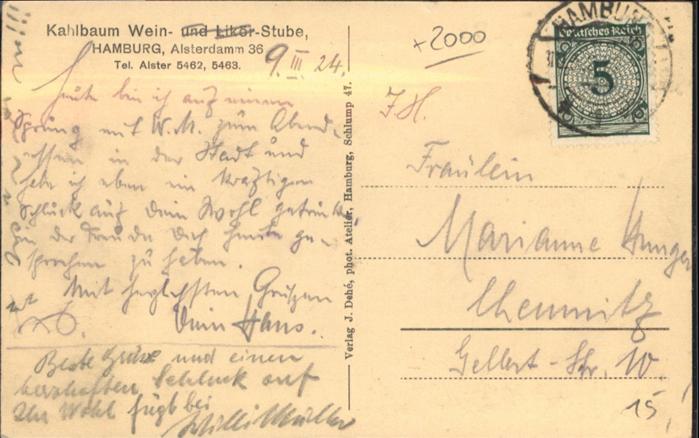 Kahlbaum Wein- und Likör-Stube,
HAMBURG, Alsterdamm 36
Tel. Alster 5462, 5463.
9. III. 24.
Heute bin ich auf einen
Sprung mit W. M. zum Abend-
essen in der Stadt und
habe ich eben ein kräftigen
Schluck auf Dein Wohl getrunken
in der Freude Dich heute ge-
sprochen zu haben.
Mit herzlichsten Grüßen
Dein Hans.
Beste Grüsse und einen
herzhaften Schluck auf
Ihr Wohl fügt bei
Willi Müller
Verlag J. Dehé, phot. Atelier, Hamburg, Schlump 47.
+2000
HAMBURG
Deutsches Reich
5
Fräulein
Marianne Unger
Chemnitz
Gellert-Str. 10.
15,